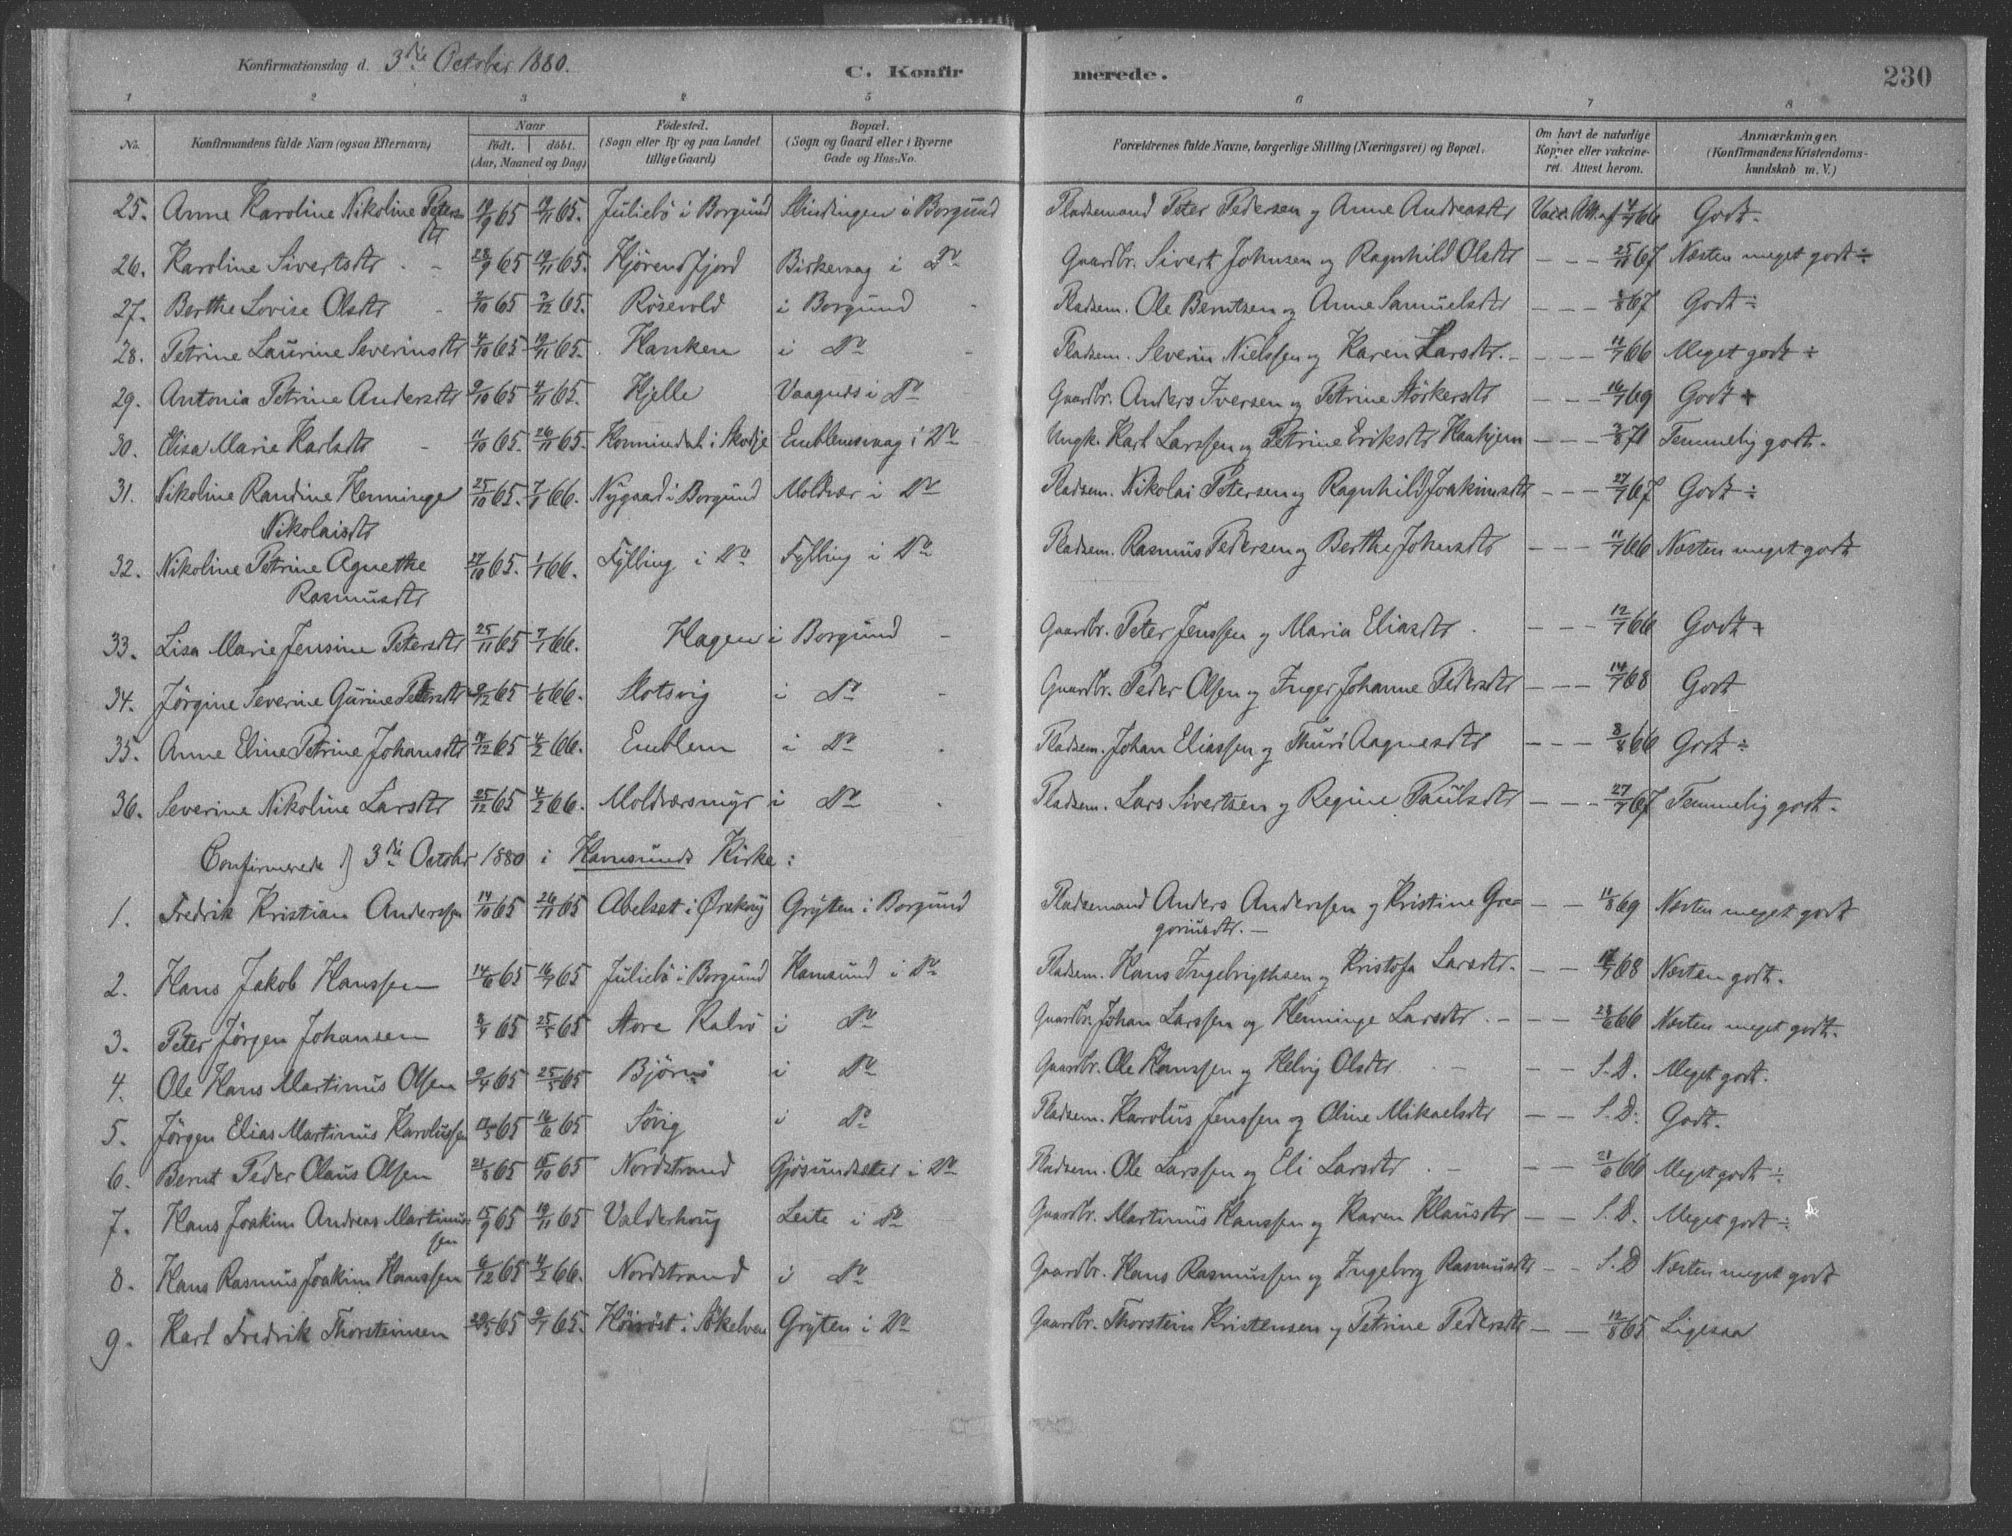 Konfirmationsdag d. 3die October 1880. C. Konfirmerede. 230
1 2 3 4 5 6 7 8
No. Konfirmandens fulde Navn (ogsaa Efternavn) Naar født. døbt. (Aar, Maaned og Dag) Fødested. (Sogn eller By og paa Landet tillige Gaard) Bopæl. (Sogn og Gaard eller i Byerne Gade og Hus-No. Forældrenes fulde Navne, borgerlige Stilling (Næringsvei) og Bopæl. Om havt de naturlige Kopper eller vakcineret. Attest herom. Anmærkninger. (Konfirmandens Kristendomskundskab m. V.)
25. Anne Karoline Nikoline Petersdtr 19/9 65 19/11 65. Juliebö i Borgund i Borgund Pladsemand Peter Pedersen og Anne Andreasdtr Vacc. Att. af 66 Godt.
26. Karoline Sivertsdtr 28/9 65 19/11 65. Hjörendfjord Birkevaag i Do Gaardbr. Sivert Johnsen og Ragnhild Olsdtr — — 67 Næsten meget godt ÷
27. Berthe Lovise Olsdtr 2/10 65 3/12 65. Rösevold i Borgund Pladsem. Ole Berntsen og Anne Samuelsdtr — — 67 Godt ÷
28. Petrine Laurine Severinsdtr 4/10 65 19/11 65. Hanken i Do Pladsem. Severin Nielssen og Karen Larsdtr. — — 11/7 66 Meget godt ÷
29. Antonia Petrine Andersdtr 9/10 65 4/11 65. Hjelle Vaagnes i Do Gaardbr. Anders Iversen og Petrine Störkersdtr — — 16/7 69 Godt +
30. Elisa Marie Karlsdtr 11/10 65. 26/11 65. i Skodje Emblemsvaag i Do Ungk. Karl Larssen og Petrine Eriksdtr Haahjem — — 3/8 71 Temmelig godt.
31. Nikoline Randine Henninge Nikolaisdtr 25/10 65. 7/1 66. Nygaard i Borgund Moldvær i Do Pladsem. Nikolai Petersen og Ragnhild Joakimsdtr — — 27/7 67 Godt ÷
32. Nikoline Petrine Agnethe Rasmusdtr 27/10 65. 1/1 66. Fylling i Do Fylling i Do Pladsem. Rasmus Pedersen og Berthe Johansdtr — — 11/7 66 Næsten meget godt
33. Lisa Marie Jensine Petersdtr 25/11 65 7/1 66. Hagen i Borgund Gaardbr. Peter Jenssen og Maria Eliasdtr. — — 12/7 66 Godt +
34. Jörgine Severine Gurine Pedersdtr 9/12 65 1/6 66. Slotsvig i Do Gaardbr. Peder Olsen og Inger Johanne Pedersdtr — — 14/7 68 Godt
35. Anne Eline Petrine Johansdtr 11/12 65 4/2 66. Emblem i Do Pladsem. Johan Eliassen og Thuri Aagnesdtr — — 8/8 66 Godt ÷
36. Severine Nikoline Larsdtr 25/12 65 4/2 66. Moldværsmyr i Do Pladsem. Lars Sivertsen og Regine Paulsdtr — — 27/7 67 Temmelig godt.
Confirmerede d. 3die October 1880 i Hamsunds Kirke:
1. Fredrik Kristian Anderssen 14/10 65 26/11 65 Abelset i Örskog Gryten i Borgund Pladsemand Anders Anderssen og Kristine Gregoriusdtr. — — 11/8 69 Næsten meget godt
2. Hans Jakob Hanssen 14/6 65 16/7 65 Juliebö i Borgund Hamsund i Do Pladsem. Hans Ingebrigthsen og Kristofa Larsdtr. — — 68 Næsten godt.
3. Peter Jörgen Johansen 65 25/5 65 Store Kalvö i Do Gaardbr. Johan Larssen og Henninge Larsdtr. — — 28/6 66 Næsten meget godt.
4. Ole Hans Martinus Olsen 9/4 65 25/5 65 Björnö i Do Gaardbr. Ole Hanssen og Helvig Olsdtr — — S. D. Meget godt.
5. Jörgen Elias Martinus Karolussen 12/5 65 16/6 65 Sövig i Do Pladsem. Karolus Jenssen og Oline Mikaelsdtr — — S. D. Godt.
6. Bernt Peder Olaus Olsen 21/8 65 15/10 65 Nordstrand Gjösundsæter i Do Pladsem. Ole Larssen og Eli Larsdtr. — — 28/6 66 Meget godt ÷
7. Hans Joakim Andreas Martinussen 15/9 65 19/11 65 Valderhoug Leite i Do Gaardbr. Martinus Hanssen og Karen Klausdtr — — S. D. Meget godt ÷
8. Hans Rasmus Joakim Hanssen 6/12 65 4/2 66. Nordstrand i Do Gaardbr. Hans Rasmussen og Ingeborg Rasmusdtr — — S. D Næsten meget godt
9. Karl Fredrik Thorsteinsen 28/5 65 9/7 65. i Sökelven Gryten i Do Gaardbr. Thorstein Kristensen og Petrine Pedersdtr — — 12/8 65 Ligesaa